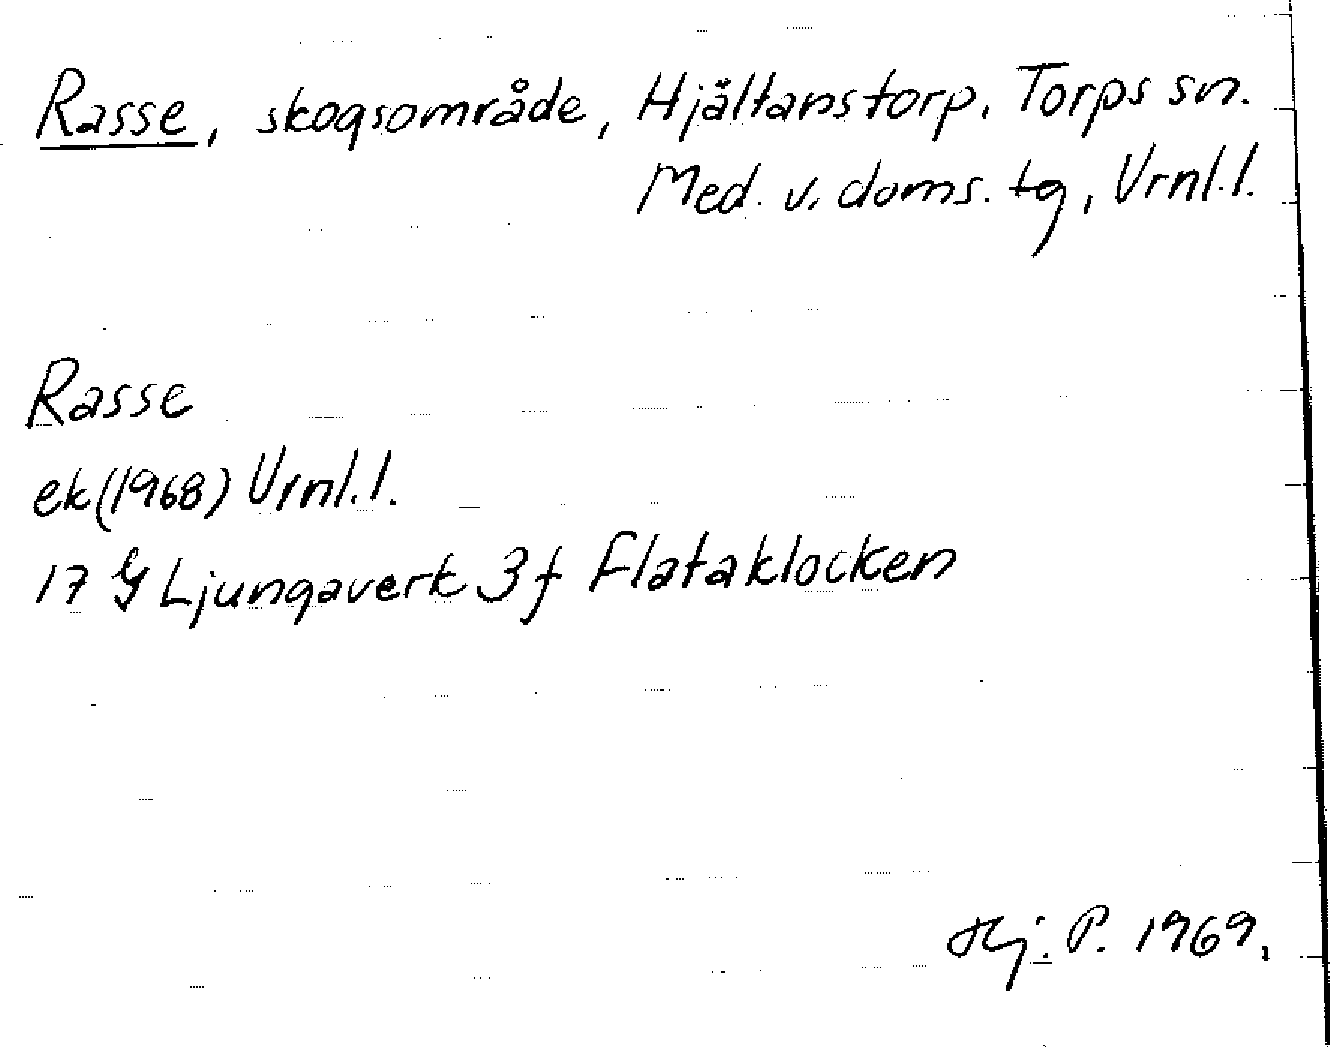 Rasse, skogsområde, Hjältanstorp, Torps sn.
Med. v. doms. tg, Vrnl. l.
Rasse
ek (1968) Vrnl. l.
17 G Ljungaverk 3 f Flataklocken
Hj. P. 1969.